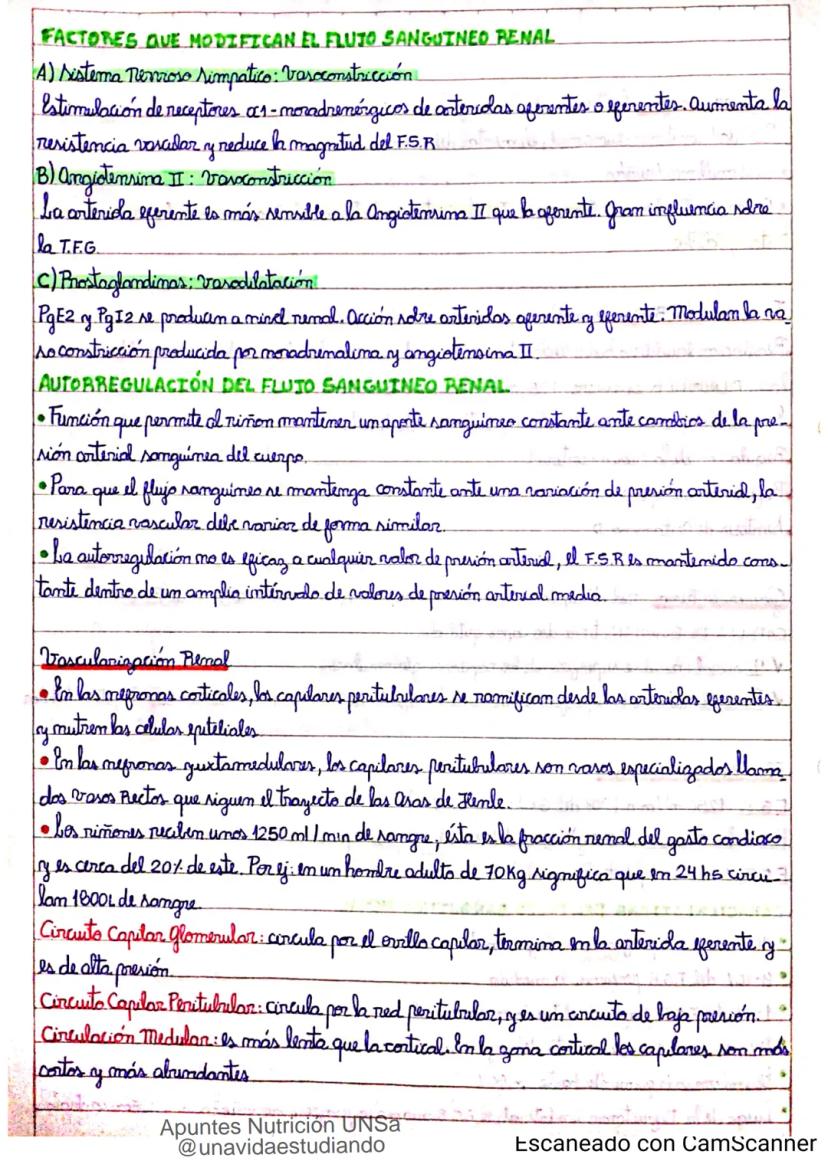 FACTORES QUE MODIFICAN EL FLUJO SANGUINEO RENAL
A) Sistema Nervioso Simpatico: Vasoconstricción
Estimulación de receptores α1-noradrenérgicos de arteriolas aferentes o eferentes. Aumenta la
resistencia vascular y reduce la magnitud del F.S.R
B) Angiotensina II: Vasoconstricción
La arteriola eferente es más sensible a la Angiotensina II que la aferente. Gran influencia sobre
la T.F.G.
C) Prostaglandinas: Vasodilatación
PgE2 y PgI2 se producen a nivel renal. Acción sobre arteriolas aferente y eferente. Modulan la va_
soconstricción producida por noradrenalina y angiotensina II.
AUTORREGULACIÓN DEL FLUJO SANGUINEO RENAL
• Función que permite al riñon mantener un aporte sanguíneo constante ante cambios de la pre-
sión arterial sanguínea del cuerpo.
• Para que el flujo sanguineo se mantenga constante ante una variación de presión arterial, la
resistencia vascular debe variar de forma similar.
• La autorregulación no es eficaz a cualquier valor de presión arterial, el F.S.R es mantenido cons-
tante dentro de un amplio intérvalo de valores de presión arterial media.
Vascularización Renal
• En las nefronas corticales, los capilares peritubulares se ramifican desde las arteriolas eferentes
y nutren las células epiteliales
• En las nefronas yuxtamedulares, los capilares peritubulares son vasos especializados llama_
dos Vasos Rectos que siguen el trayecto de las Asas de Henle.
• Los riñones reciben unos 1250 ml/min de sangre, ésta es la fracción renal del gasto cardiaco
y es cerca del 20% de este. Por ej: en un hombre adulto de 70Kg significa que en 24 hs circu_
lan 1800L de sangre
Circuito Capilar Glomerular: circula por el ovillo capilar, termina en la arteriola eferente y
es de alta presión.
Circuito Capilar Peritubular: circula por la red peritubular, y es un circuito de baja presión.
Circulación Medular: es más lenta que la cortical. En la zona cortical los capilares son más
cortos y más abundantes
Apuntes Nutrición UNSa
@unavidaestudiando
Escaneado con CamScanner